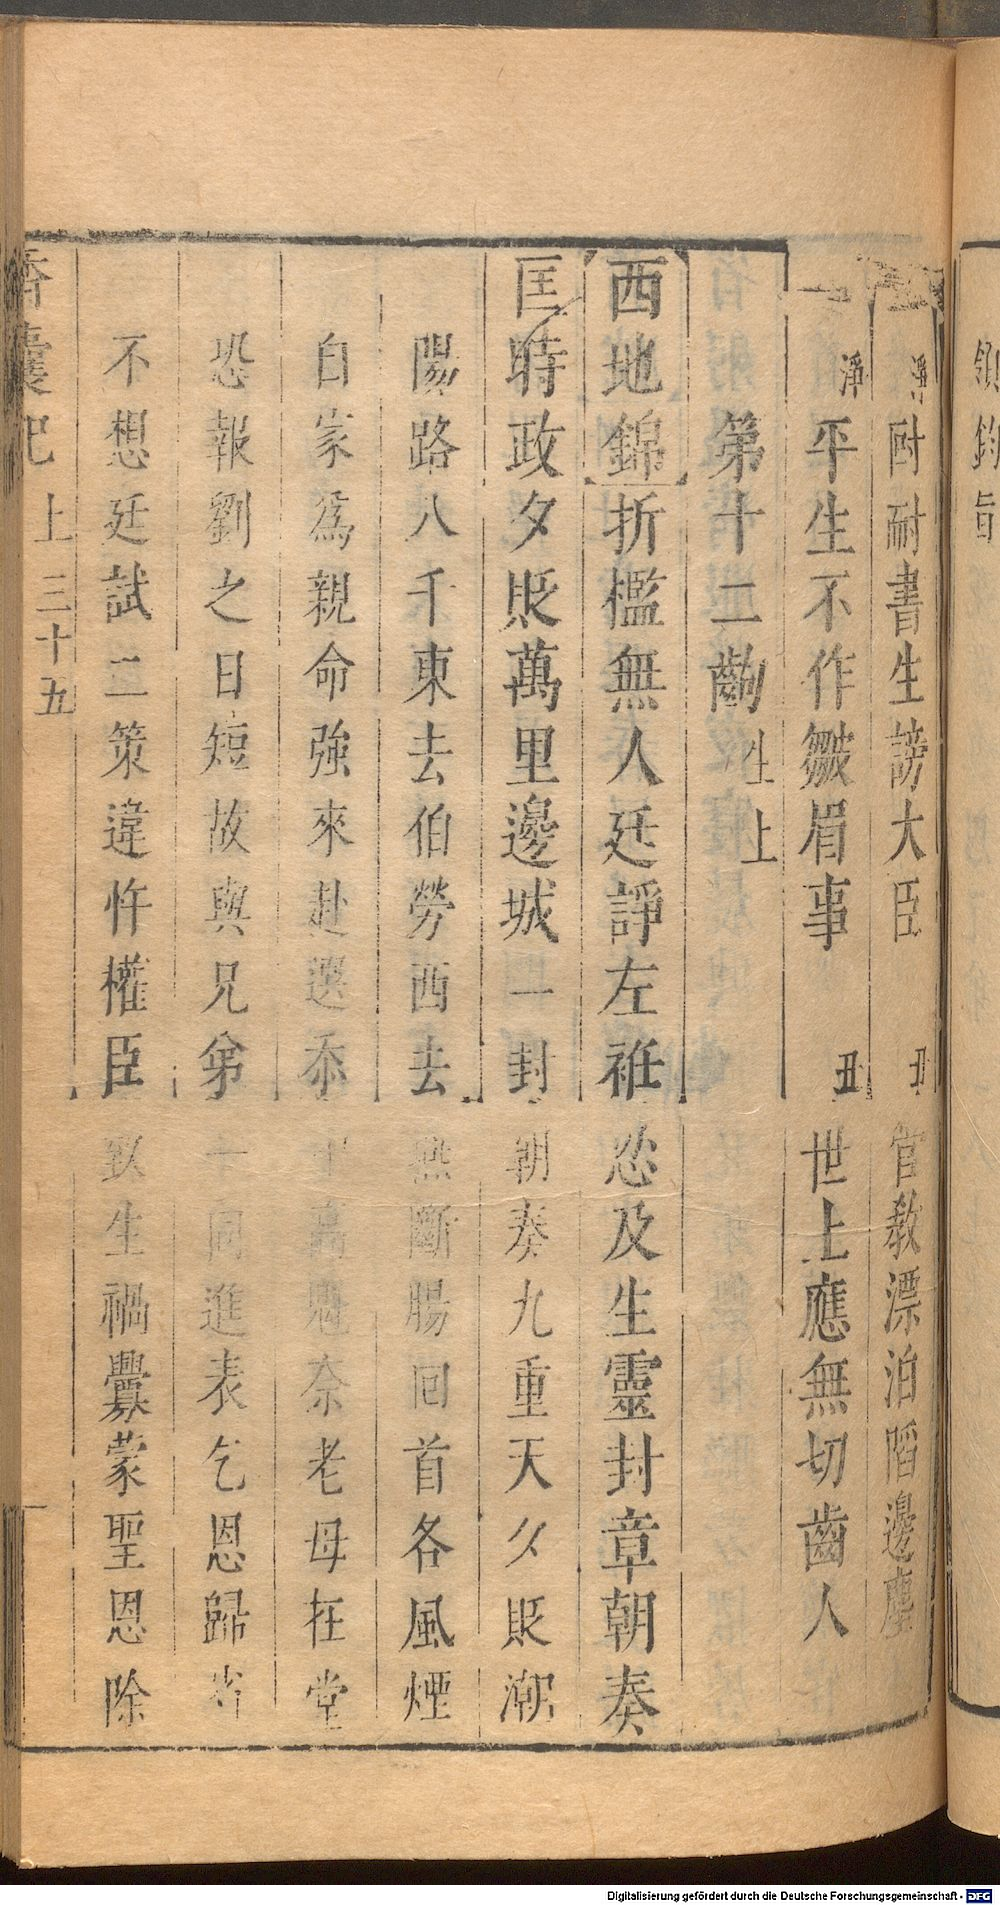 領鈞旨
淨 耐耐書生謗大臣 丑 官教漂泊陷邊塵
淨 平生不作皺眉事 丑 世上應無切齒人
第十二齣 生上
西地錦 折檻無人廷諍左袵忿及生靈封章朝奏
匡時政夕貶萬里邊城一封朝奏九重天夕貶潮
陽路八千東去伯勞西去燕斷腸回首各風煙
自家爲親命強來赴選忝中高魁奈老母在堂
恐報劉之日短故與兄弟一同進表乞恩歸省
不想廷試二策違忤權臣致生禍釁蒙聖恩除
香囊記 上 三十五
Digitalisierung gefördert durch die Deutsche Forschungsgemeinschaft - DFG